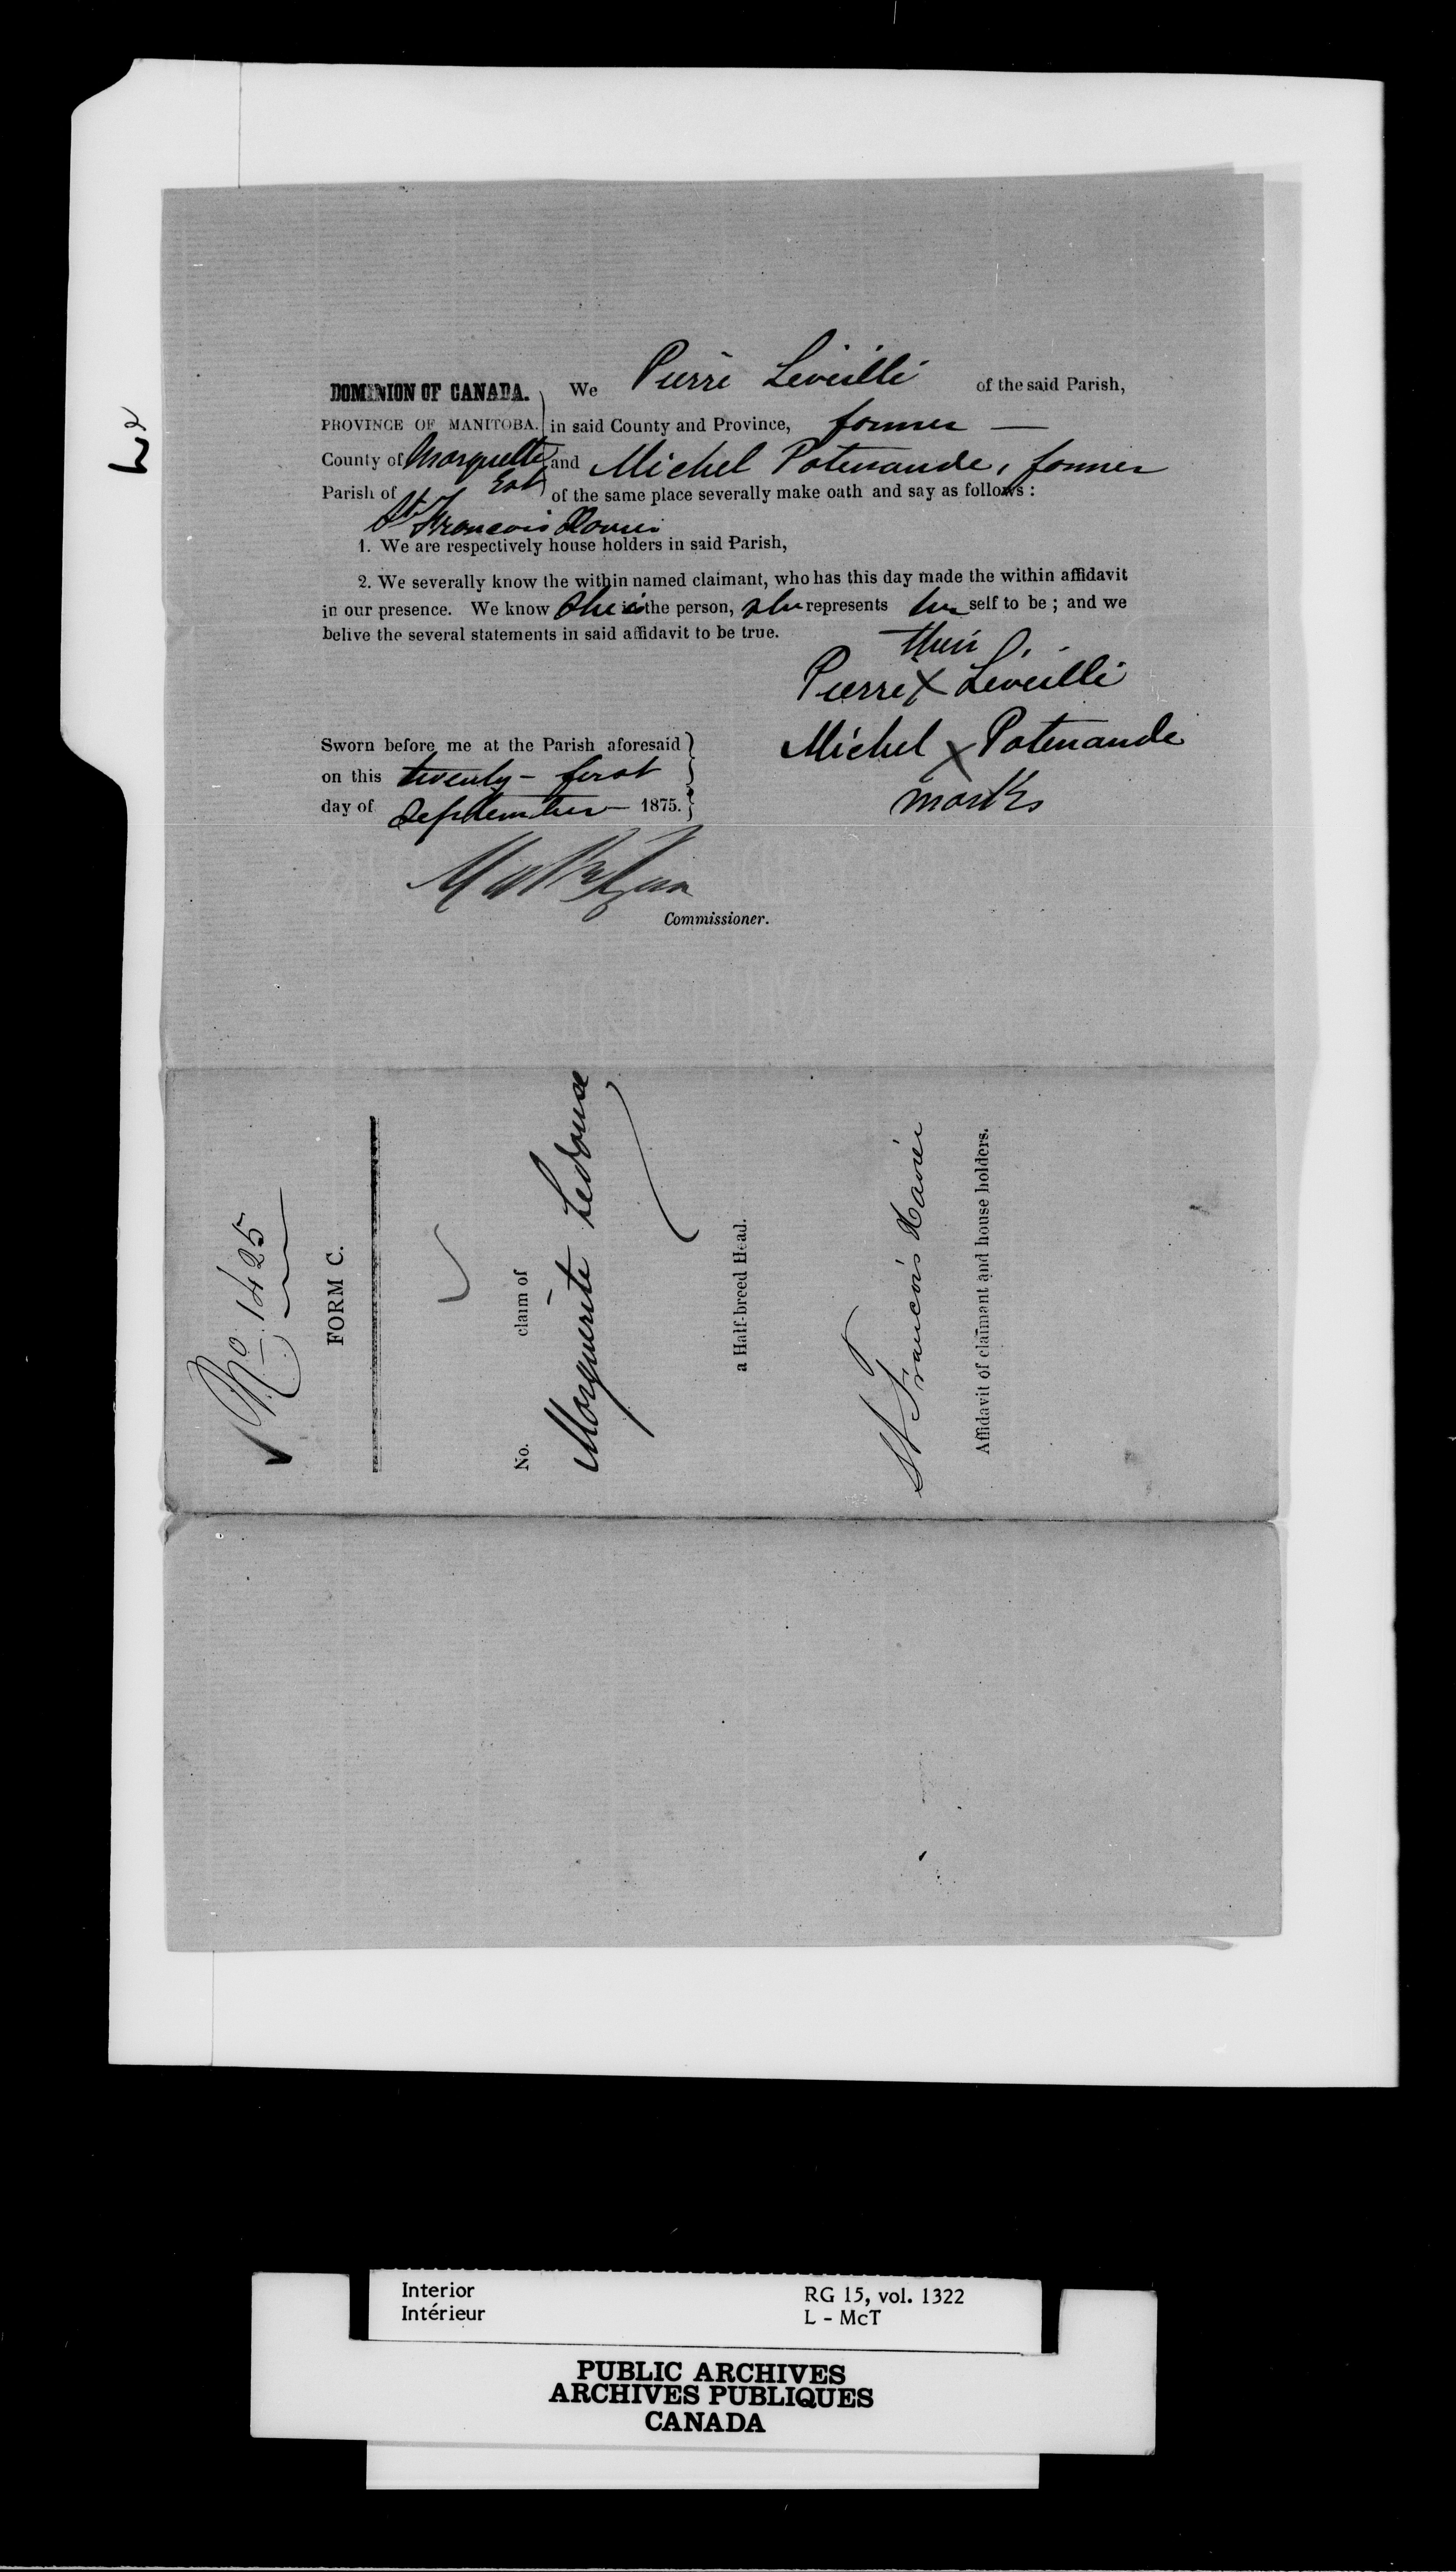 DOMINION OF CANADA. We Pierre Léveillé of the said Parish,
PROVINCE OF MANITOBA. in said County and Province, farmer —
County of Marquette and Michel Patenaude, farmer
East
Parish of of the same place severally make oath and say as follows :
St. Francois Xavier
1. We are respectively house holders in said Parish,
2. We severally know the within named claimant, who has this day made the within affidavit
in our presence. We know She is the person, she represents her self to be ; and we
belive the several statements in said affidavit to be true.
their
Pierre X Léveillé
Michel X Patenaude
marks
Sworn before me at the Parish aforesaid
on this twenty-first
day of September — 1875.
Commissioner.
No. 1425
FORM C.
No. claim of
Marguerite Ledoux
a Half-breed Head.
St Francois Xavier
Affidavit of claimant and house holders.
Interior RG 15, vol. 1322
Intérieur L - McT
PUBLIC ARCHIVES
ARCHIVES PUBLIQUES
CANADA